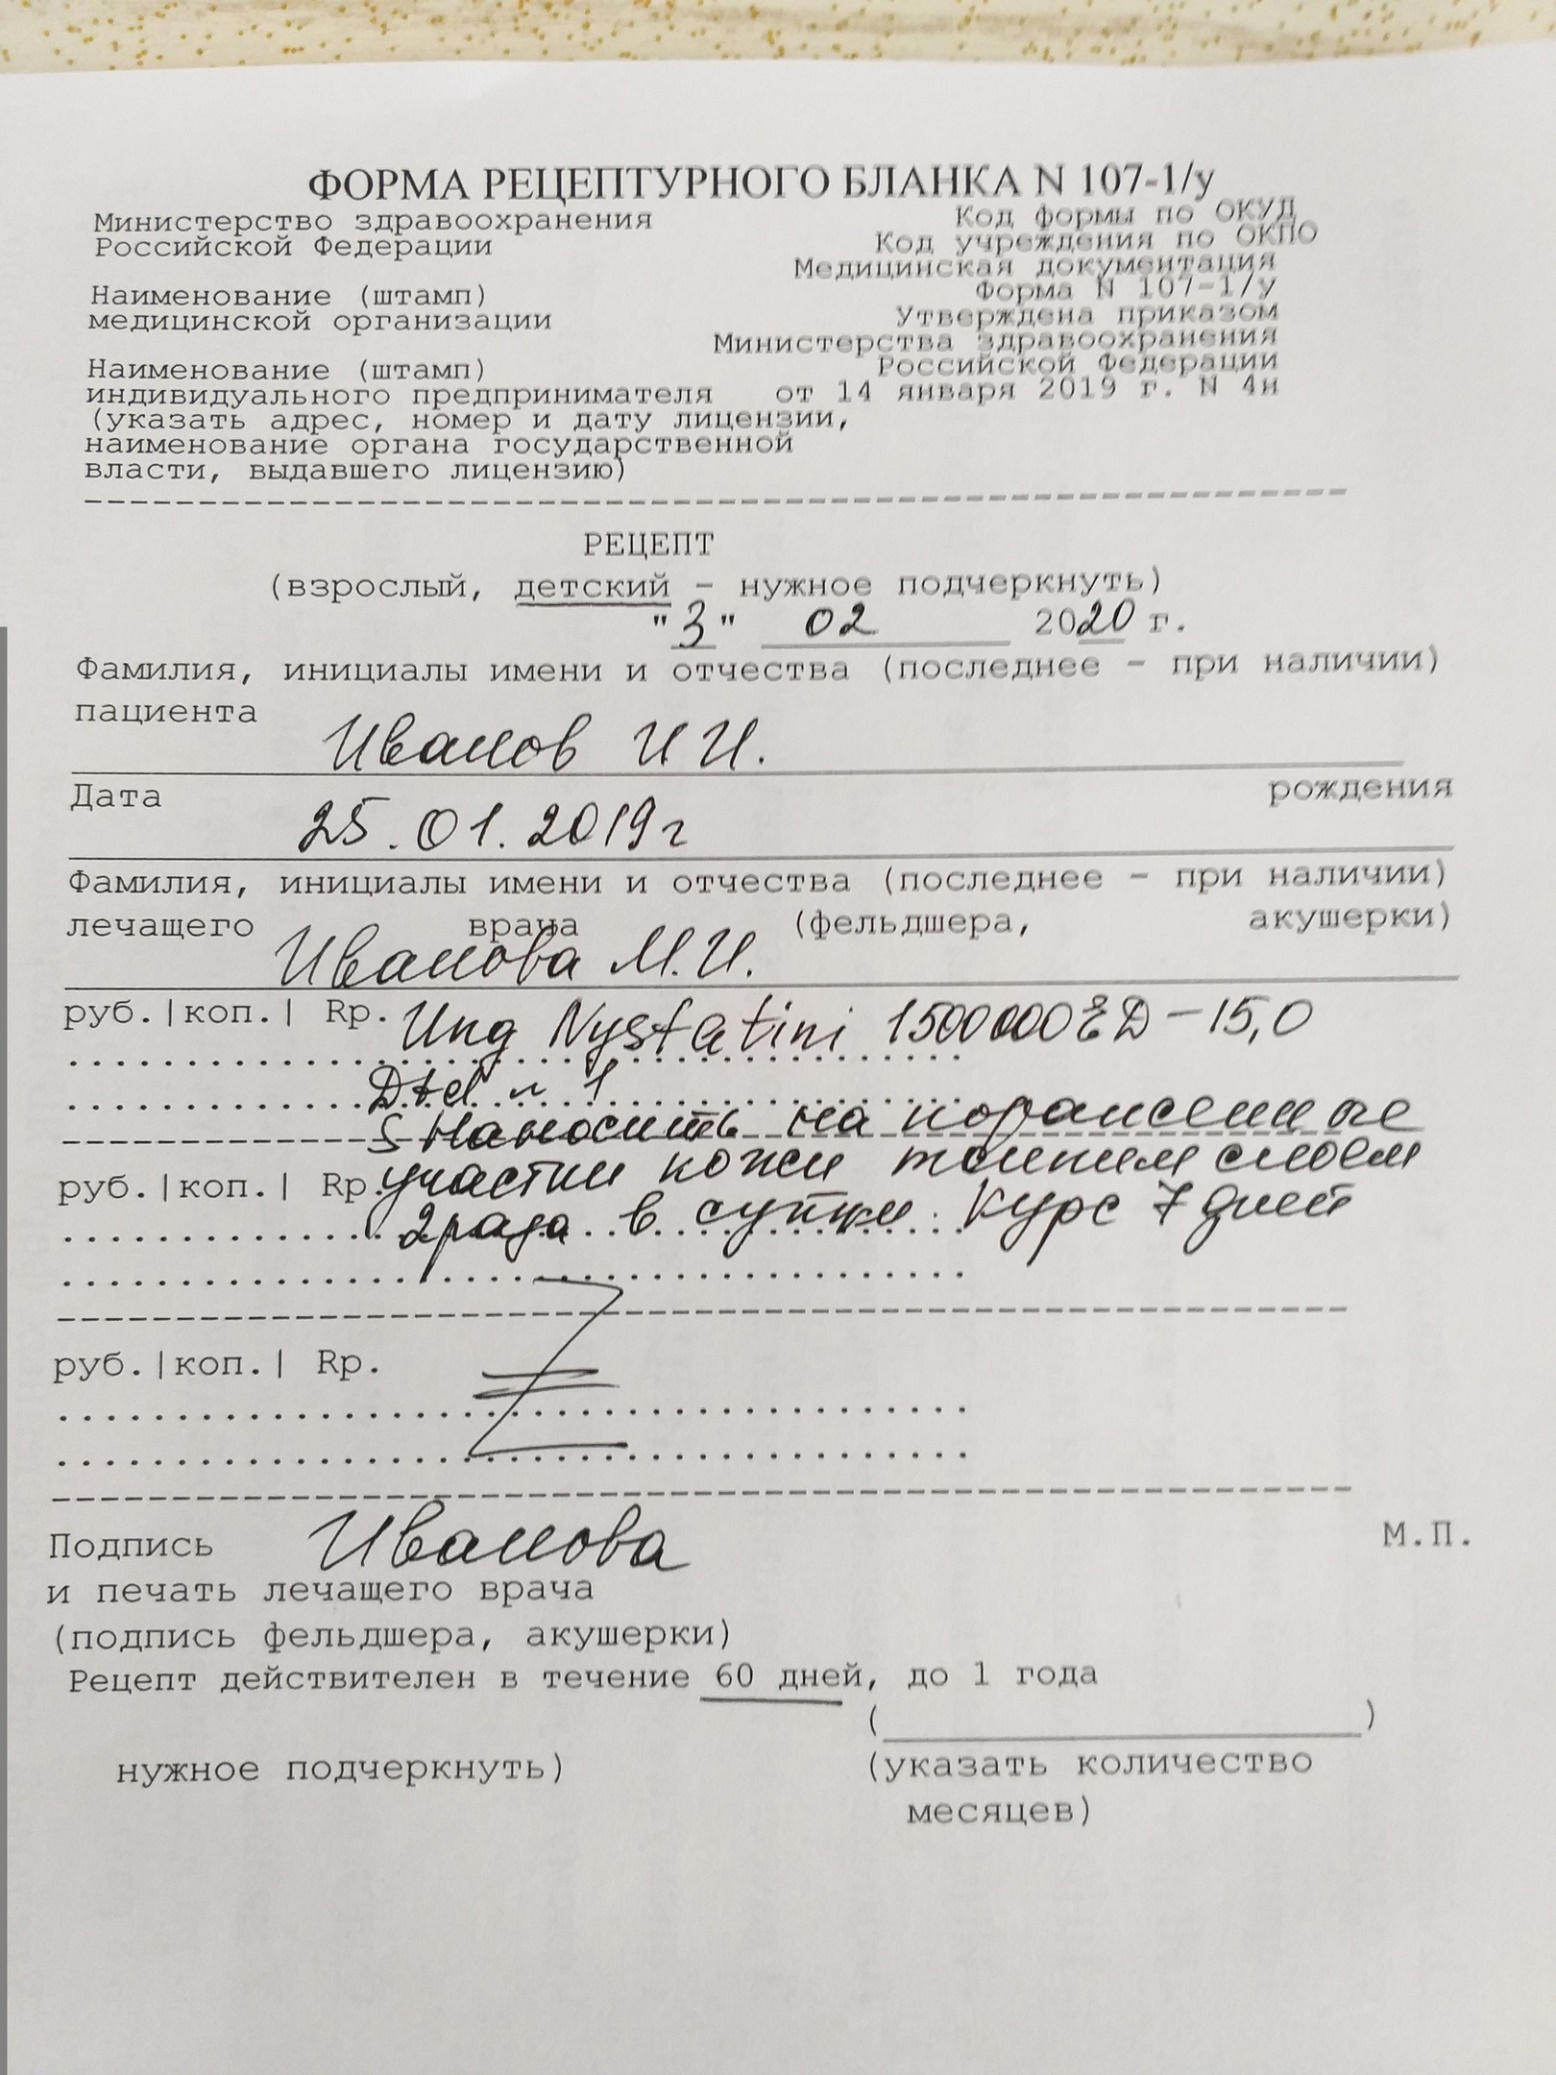 ФОРМА РЕЦЕПТУРНОГО БЛАНКА N 107-1/у
Министерство здравоохранения Код формы по ОКУД
Российской Федерации Код учреждения по ОКПО
Медицинская документация
Наименование (штамп) Форма N 107-1/у
медицинской организации Утверждена приказом
Министерства здравоохранения
Наименование (штамп) Российской Федерации
индивидуального предпринимателя от 14 января 2019 г. N 4н
(указать адрес, номер и дату лицензии,
наименование органа государственной
власти, выдавшего лицензию)
РЕЦЕПТ
(взрослый, детский - нужное подчеркнуть)
"3" 02 2020 г.
Фамилия, инициалы имени и отчества (последнее - при наличии)
пациента
Иванов И И.
Дата рождения
25.01.2019г
Фамилия, инициалы имени и отчества (последнее - при наличии)
лечащего врача (фельдшера, акушерки)
Иванова М.И.
руб.|коп.| Rp. Ung Nystatini 1500000ЕД-15,0
Dtd N 1
S Наносить на пораженные
руб.|коп.| Rp. участки кожи тонким слоем
2 раза в сутки. Курс 7 дней
руб.|коп.| Rp.
Подпись Иванова М.П.
и печать лечащего врача
(подпись фельдшера, акушерки)
Рецепт действителен в течение 60 дней, до 1 года
(____________________)
нужное подчеркнуть) (указать количество
месяцев)